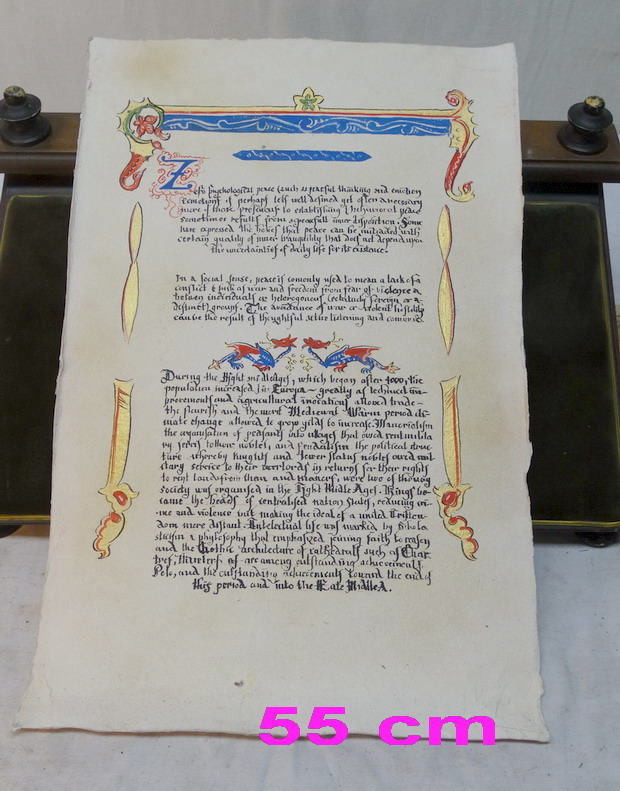 Psychological peace (such as peaceful thinking and emotion
emotions) is perhaps less well defined yet often a necessary
more of those precursor to establishing "behavioral peace
sometimes results from a peacefull inner disposition. Some
have expressed the belief that peace can be initiated with
certain quality of inner tranquility that does not depend upon
the uncertainties of daily life for its existence.
In a social sense, peace is comonly used to mean a lack of a
conflict & such as war and freedom from fear of violence a
between individuals or heterogenous
distinct) groups. The avoidance of war or violent hostility
can be the result of thoughtful active listening and
During the Hight midleAges, which began after 1000, the
population increased in Europa greatly as technical im-
provements and agricultural inovations allowed trade
the flourish and the Medieval Warm period cli-
mate change allowed to crop yilds to increase. Manorialism
the organisation of peasants into vilages that owed rent
to their nobles, and Feudalism the political struc-
ture whereby knights and lower status nobles owed mil-
itary service to their overlords in returns for their rights
to rent land from than and manors, were two of the way
society was organised in the Hight Middle Ages. Kings be-
came the heads of centralised nation states, reducing cri-
me and violence but making the ideal of a united Christen-
dom more distant. Intelectual life was marked by Schola
sticism a philosophy that emphasized joining faith to reason
and the Gothic architecture of cathedrals such of Char
tres, of are among outstanding achievement
and the outstanding achievements toward the end of
this period and into the Late MiddleA.
55 cm